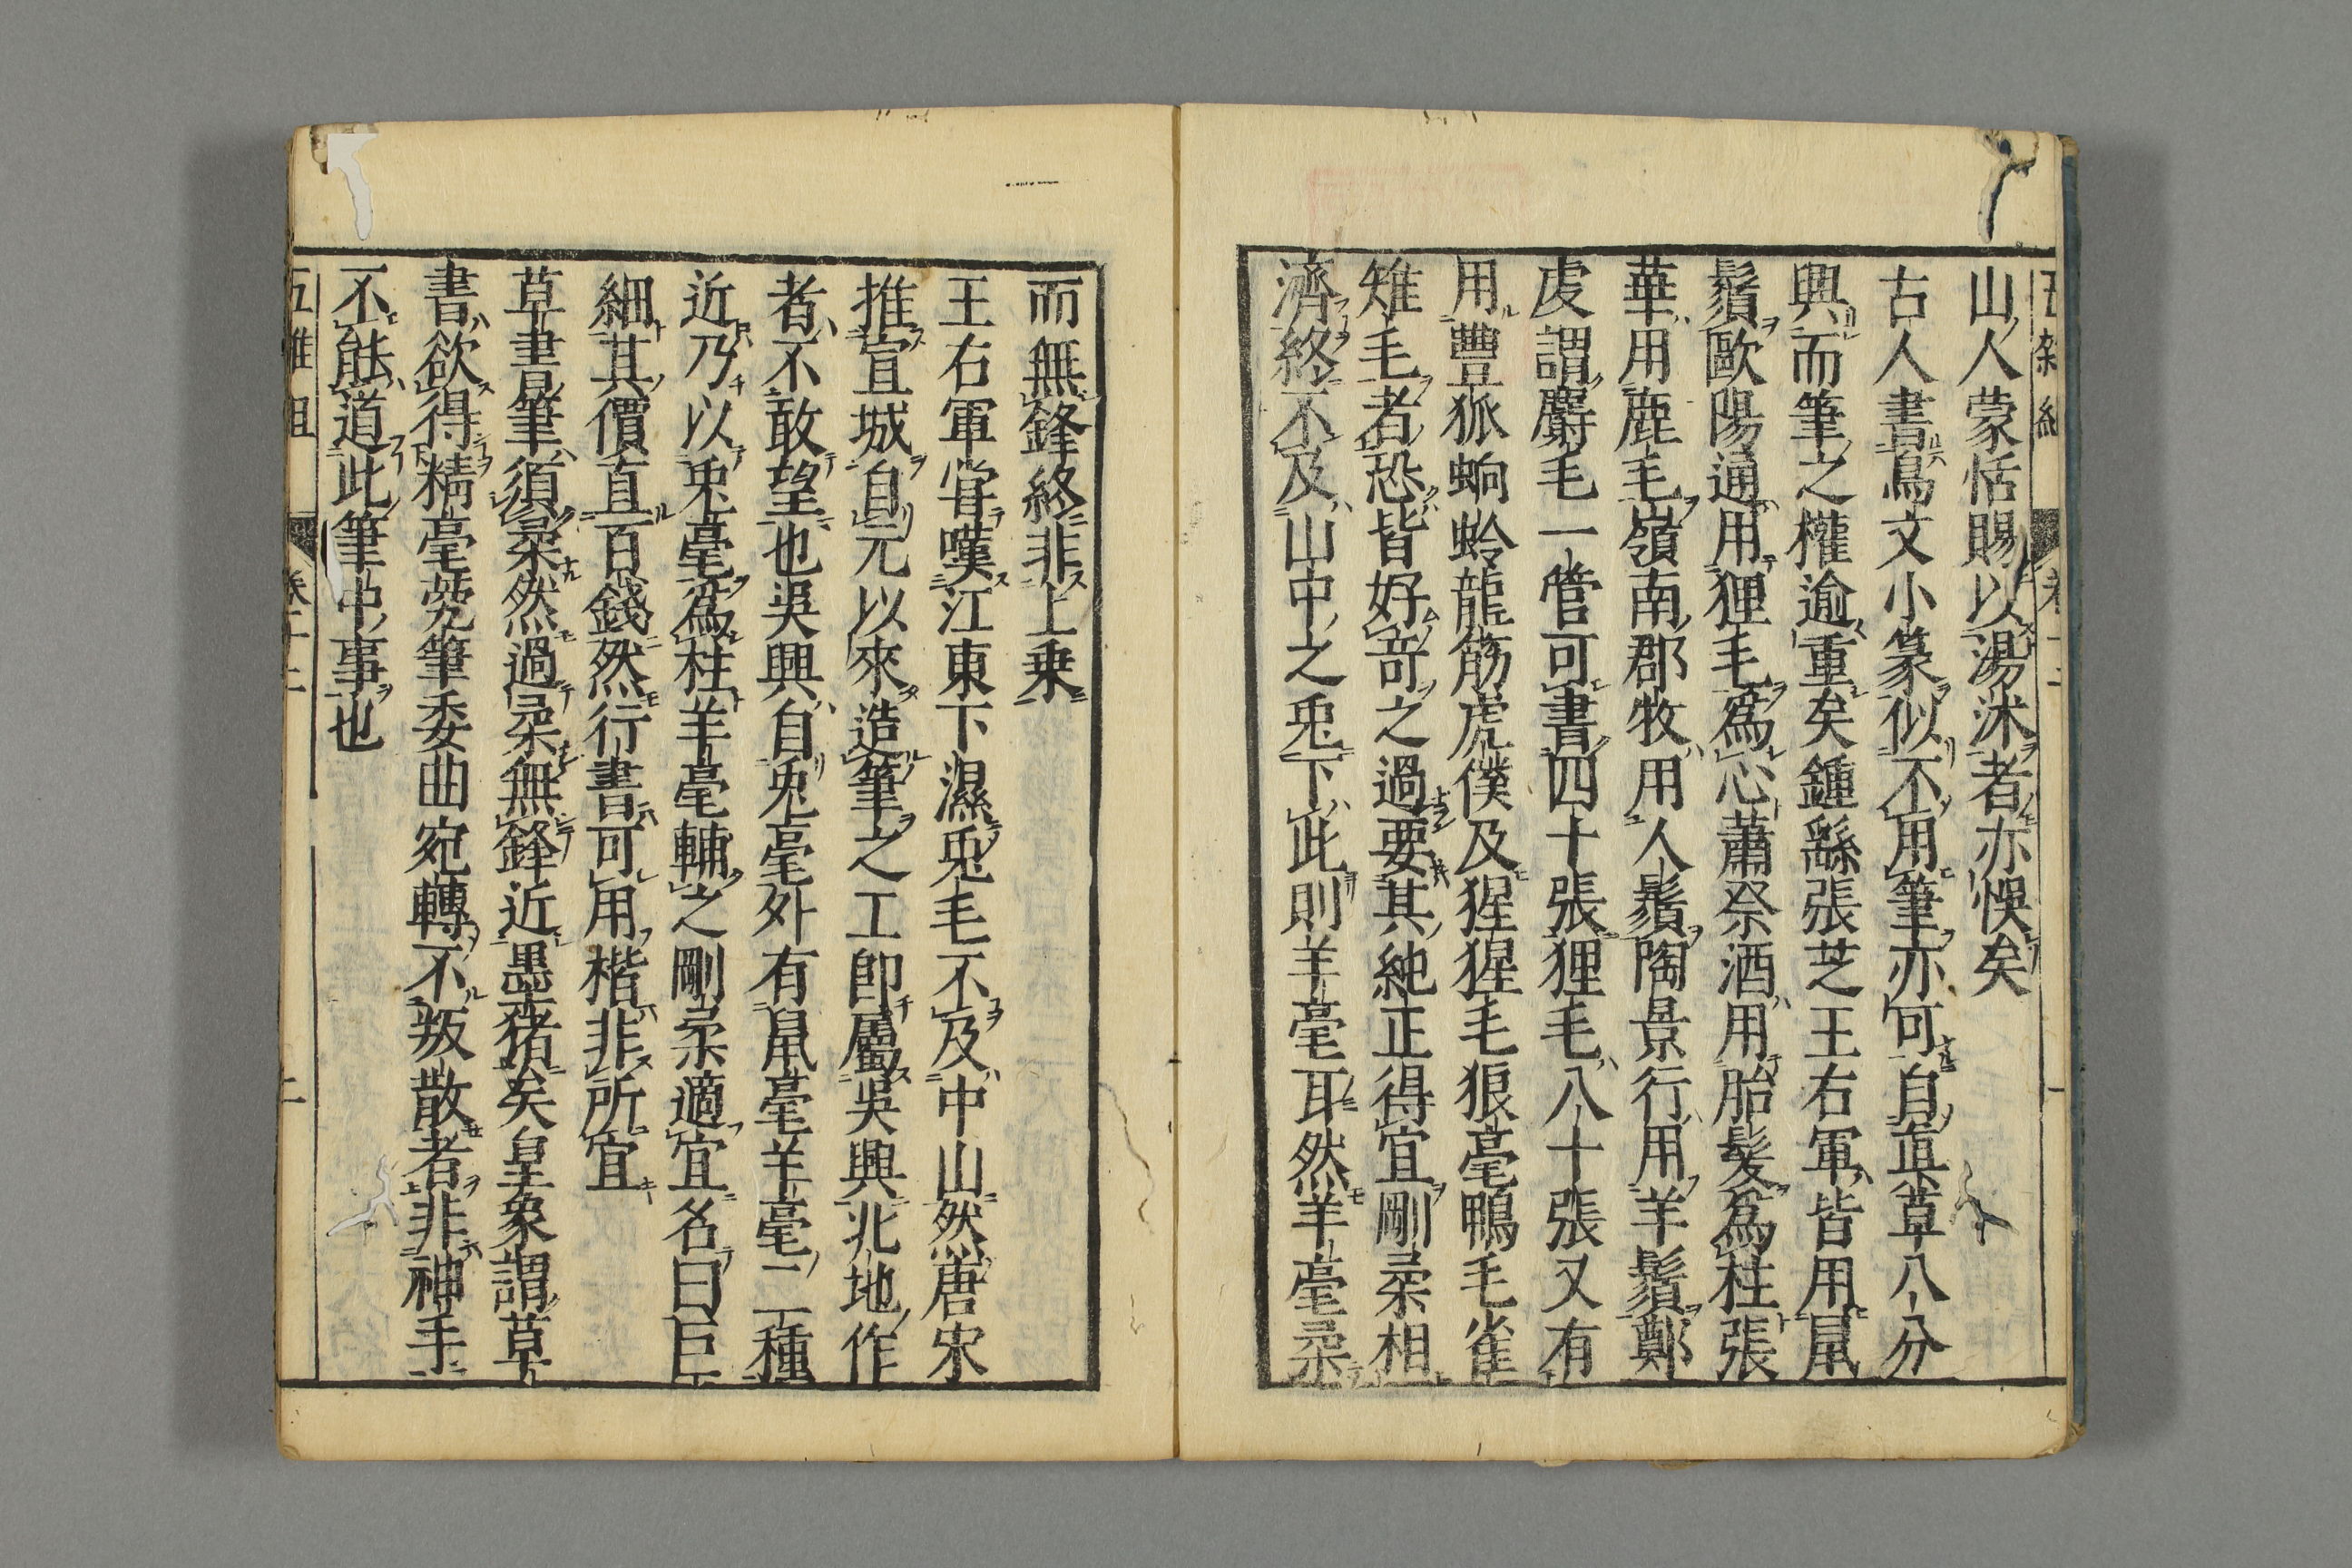 山人蒙恬賜以湯沐者亦悞矣
古人書鳥文小篆似不用筆亦可自真草八分
興而筆之權逾重矣鍾繇張芝王右軍皆用鼠
鬚歐陽通用狸毛爲心蕭祭酒用胎髮爲柱張
華用鹿毛嶺南郡牧用人鬚陶景行用羊鬚鄭
虔謂麝毛一管可書四十張狸毛八十張又有
用豐狐蚼蛉龍筋虎僕及猩猩毛狼毫鴨毛雀
雉毛者恐皆好奇之過要其純正得宜剛柔相
濟終不及山中之兎下此則羊毫耳然羊毫柔
而無鋒終非上乗
王右軍嘗嘆江東下濕兎毛不及中山然唐宋
推宣城自元以來造筆之工即屬吳興北地作
者不敢望也吳興自兎毫外有鼠毫羊毫二種
近乃以兎毫爲柱羊毫輔之剛柔適宜名曰巨
細其價直百錢然行書可用楷非所宜
草書筆須柔然過柔無鋒近墨猪矣皇象謂草
書欲得精毫㼱筆委曲宛轉不叛散者非神手
不能道此筆中事也
五雜俎 卷十二